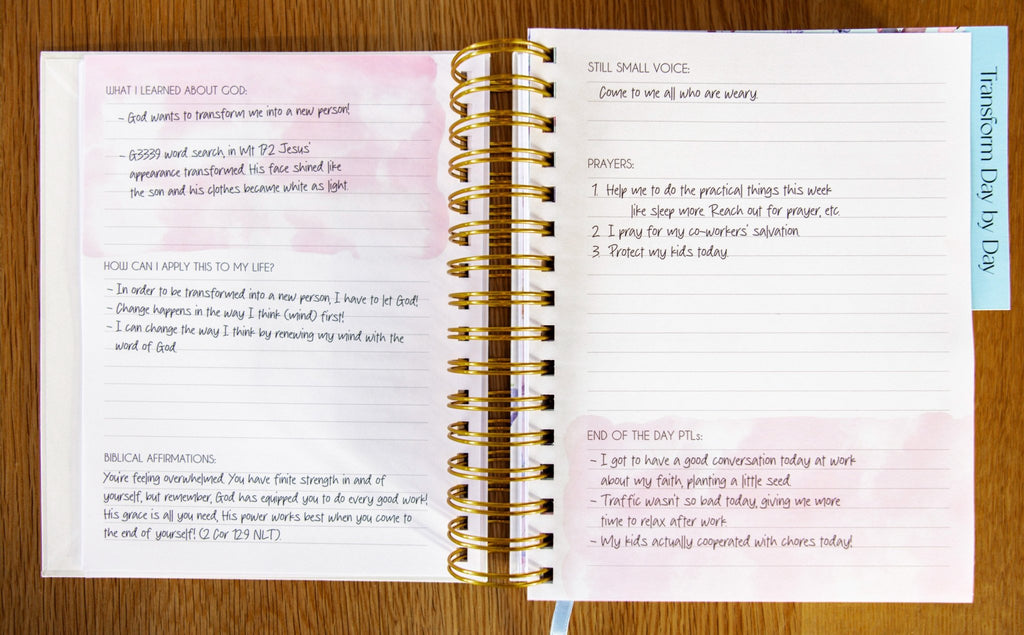 WHAT I LEARNED ABOUT GOD:
- God wants to transform me into a new person!
- G3339 word search, in Mt 17:2 Jesus'
appearance transformed. His face shined like
the son and his clothes became white as light.
HOW CAN I APPLY THIS TO MY LIFE?
- In order to be transformed into a new person, I have to let God!
- Change happens in the way I think (mind) first!
- I can change the way I think by renewing my mind with the
word of God.
BIBLICAL AFFIRMATIONS:
You're feeling overwhelmed. You have finite strength in and of
yourself, but remember, God has equipped you to do every good work!
His grace is all you need, His power works best when you come to
the end of yourself! (2 Cor 12:9 NLT).
STILL SMALL VOICE:
Come to me all who are weary.
PRAYERS:
1. Help me to do the practical things this week
like sleep more. Reach out for prayer, etc.
2. I pray for my co-workers' salvation.
3. Protect my kids today.
END OF THE DAY PTLs:
- I got to have a good conversation today at work
about my faith, planting a little seed.
- Traffic wasn't so bad today, giving me more
time to relax after work.
- My kids actually cooperated with chores today!
Transform Day by Day